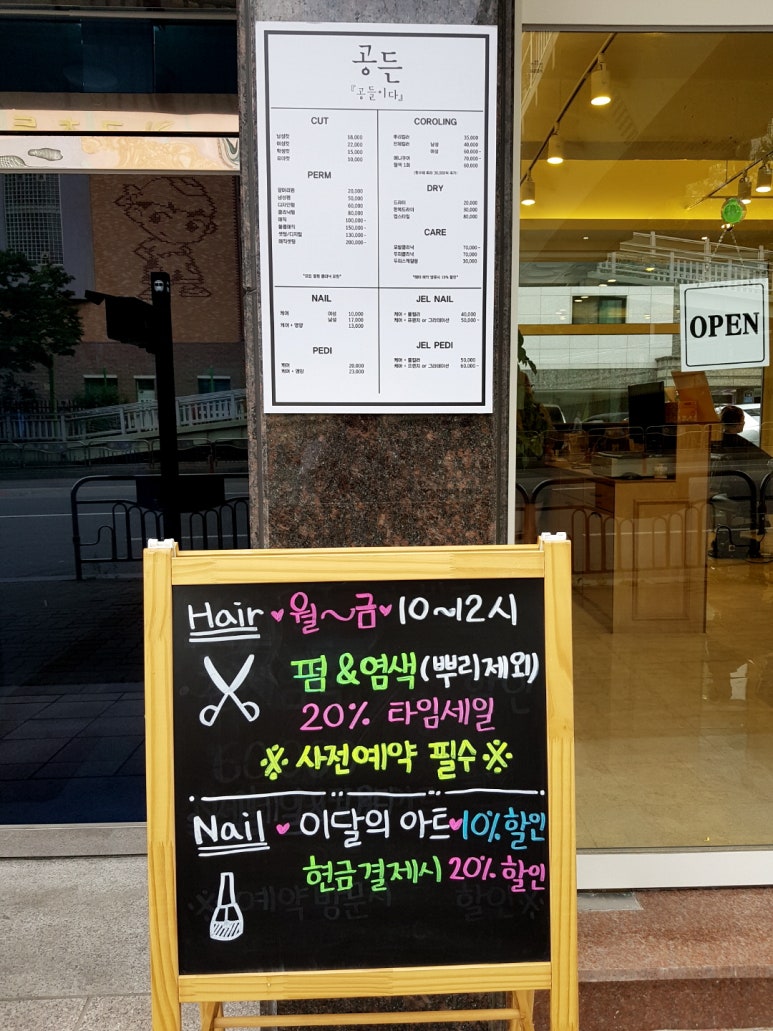 공든
『공들이다』
CUT
남성컷 18,000
여성컷 22,000
학생컷 15,000
유아컷 10,000
PERM
앞머리펌 20,000
남성펌 50,000
디자인펌 60,000
클리닉펌 80,000
매직 100,000~
볼륨매직 150,000~
셋팅/디지털 130,000~
매직셋팅 200,000~
COROLING
뿌리컬러 35,000
전체컬러 남성 40,000
여성 60,000~
매니큐어 70,000~
탈색 1회 60,000
DRY
드라이 20,000
30,000
업스타일 80,000
CARE
70,000~
두피클리닉 70,000
두피스케일링 30,000
NAIL
케어 여성 10,000
남성 17,000
케어 + 영양 13,000
PEDI
케어 20,000
케어 + 영양 23,000
JEL NAIL
케어 + 풀컬러 40,000
케어 + 프렌치 or 그라데이션 50,000~
JEL PEDI
케어 + 풀컬러 50,000
케어 + 프렌치 or 그라데이션 60,000~
OPEN
Hair 월~금 10~12시
펌 & 염색 (뿌리제외)
20% 타임세일
※ 사전예약 필수 ※
Nail 이달의 아트 10% 할인
현금결제시 20% 할인